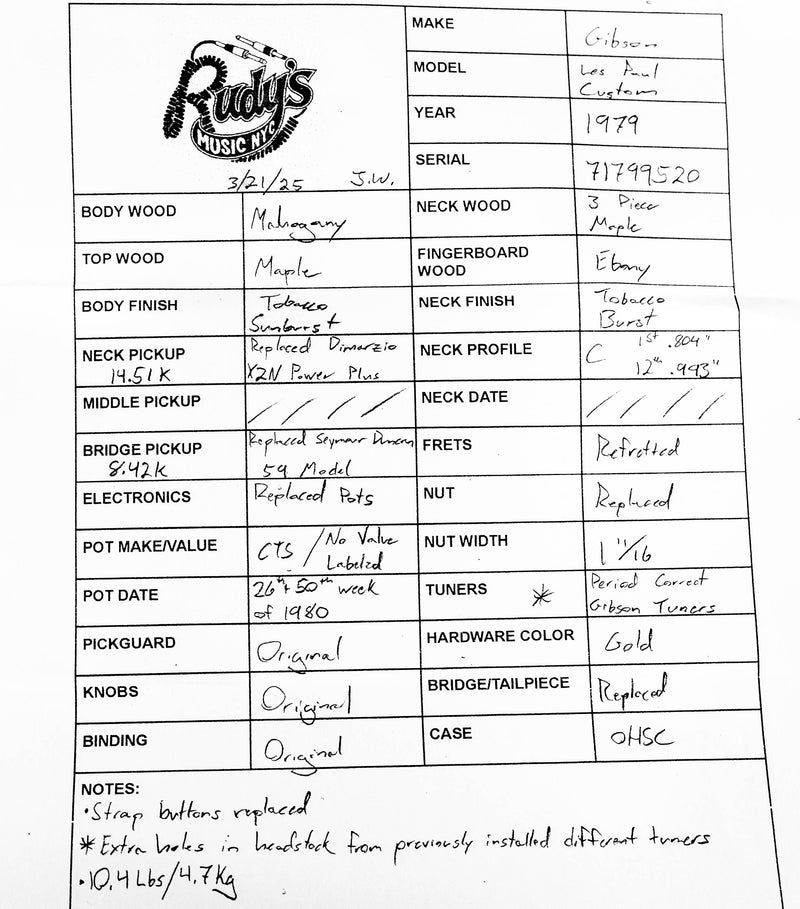 Rudy's
MUSIC NYC
3/21/25 J.W.
MAKE Gibson
MODEL Les Paul
Custom
YEAR 1979
SERIAL 71799520
BODY WOOD Mahogany
NECK WOOD 3 Piece
Maple
TOP WOOD Maple
FINGERBOARD
WOOD Ebony
BODY FINISH Tobacco
Sunburst
NECK FINISH Tobacco
Burst
NECK PICKUP Replaced Dimarzio
14.51K X2N Power Plus
NECK PROFILE C 1st .804"
12th .993"
MIDDLE PICKUP / / / /
NECK DATE / / / /
BRIDGE PICKUP Replaced Seymour Duncan
8.42K 59 Model
FRETS Refretted
ELECTRONICS Replaced Pots
NUT Replaced
POT MAKE/VALUE CTS / No Value
Labeled
NUT WIDTH 1 11/16
POT DATE 26th + 50th week
of 1980
TUNERS * Period Correct
Gibson Tuners
PICKGUARD Original
HARDWARE COLOR Gold
KNOBS Original
BRIDGE/TAILPIECE Replaced
BINDING Original
CASE OHSC
NOTES:
• Strap buttons replaced
* Extra holes in headstock from previously installed different tuners
• 10.4 Lbs/4.7Kg